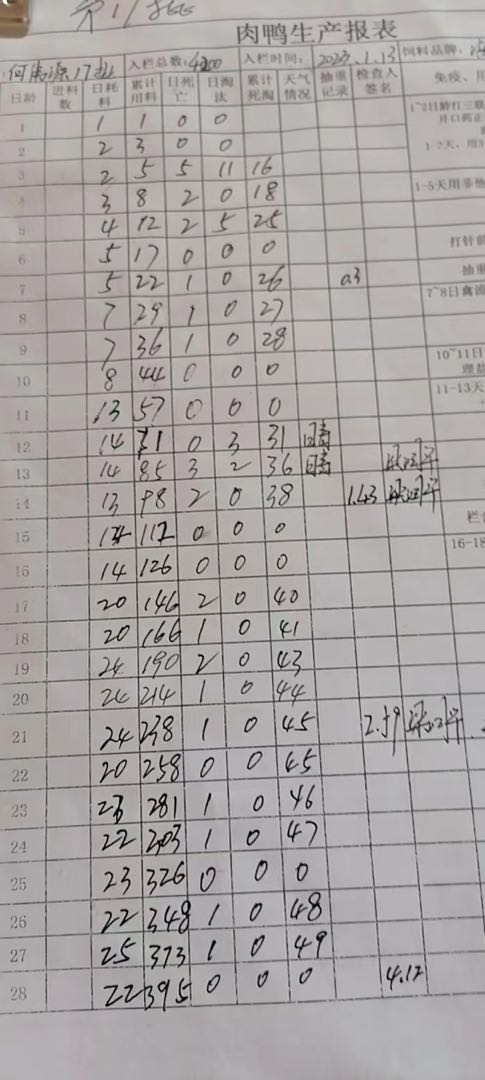 肉鸭生产报表
17批 入栏总数: 4200 入栏时间: 2023.1.13 饲料品牌:
日龄 进料数 日耗料 累计用料 日死亡 日淘汰 累计死淘 天气情况 抽重记录 检查人签名 免疫、用
1 1 1 0 0
2 2 3 0 0
3 2 5 5 11 16
4 3 8 2 0 18
5 4 12 2 5 25
6 5 17 0 0 0
7 5 22 1 0 26 0.3
8 7 29 1 0 27
9 7 36 1 0 28
10 8 44 0 0 0
11 13 57 0 0 0
12 14 71 0 3 31 晴
13 14 85 3 2 36 晴
14 13 98 2 0 38 1.43
15 14 112 0 0 0
16 14 126 0 0 0
17 20 146 2 0 40
18 20 166 1 0 41
19 24 190 2 0 43
20 24 214 1 0 44
21 24 238 1 0 45 2.59
22 20 258 0 0 45
23 23 281 1 0 46
24 22 303 1 0 47
25 23 326 0 0 0
26 22 348 1 0 48
27 25 373 1 0 49
28 22 395 0 0 0 4.12
1~2日龄打三联
开口药正
1-2天、用3
1-5天用非他
打针前
抽重
7~8日禽流
10~11日
11-13天
16-18